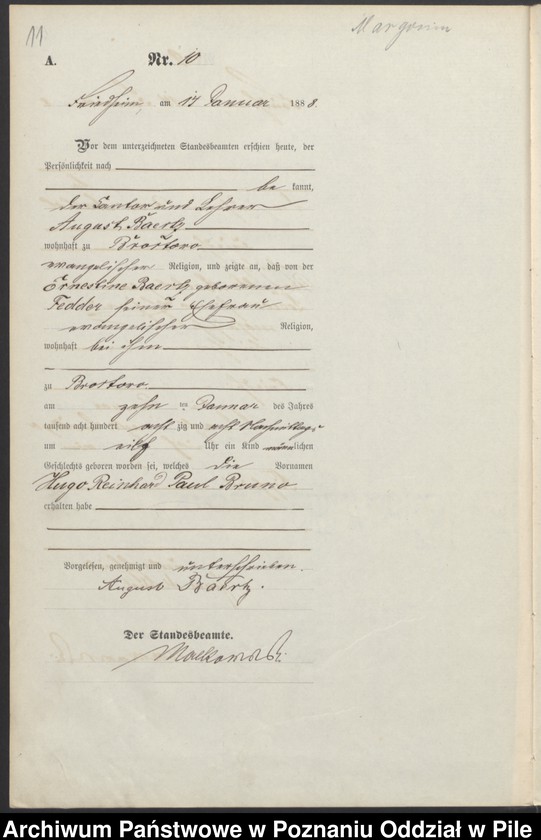 11
Margonin
A. Nr. 10
Friedheim, am 17 Januar 1888.
Vor dem unterzeichneten Standesbeamten erschien heute, der
Persönlichkeit nach
be kannt,
der Cantor und Lehrer
August Baertz
wohnhaft zu Brostowo
evangelischer Religion, und zeigte an, daß von der
Ernestine Baertz geborenen
Fedder seiner Ehefrau
evangelischer Religion,
wohnhaft bei ihm
zu Brostowo
am zehn ten Januar des Jahres
tausend acht hundert acht zig und acht Nachmittags
um eilf Uhr ein Kind männlichen
Geschlechts geboren worden sei, welches die Vornamen
Hugo Reinhard Paul Bruno
erhalten habe
Vorgelesen, genehmigt und unterschrieben.
August Baertz.
Der Standesbeamte.
Malkowski
Archiwum Państwowe w Poznaniu Oddział w Pile